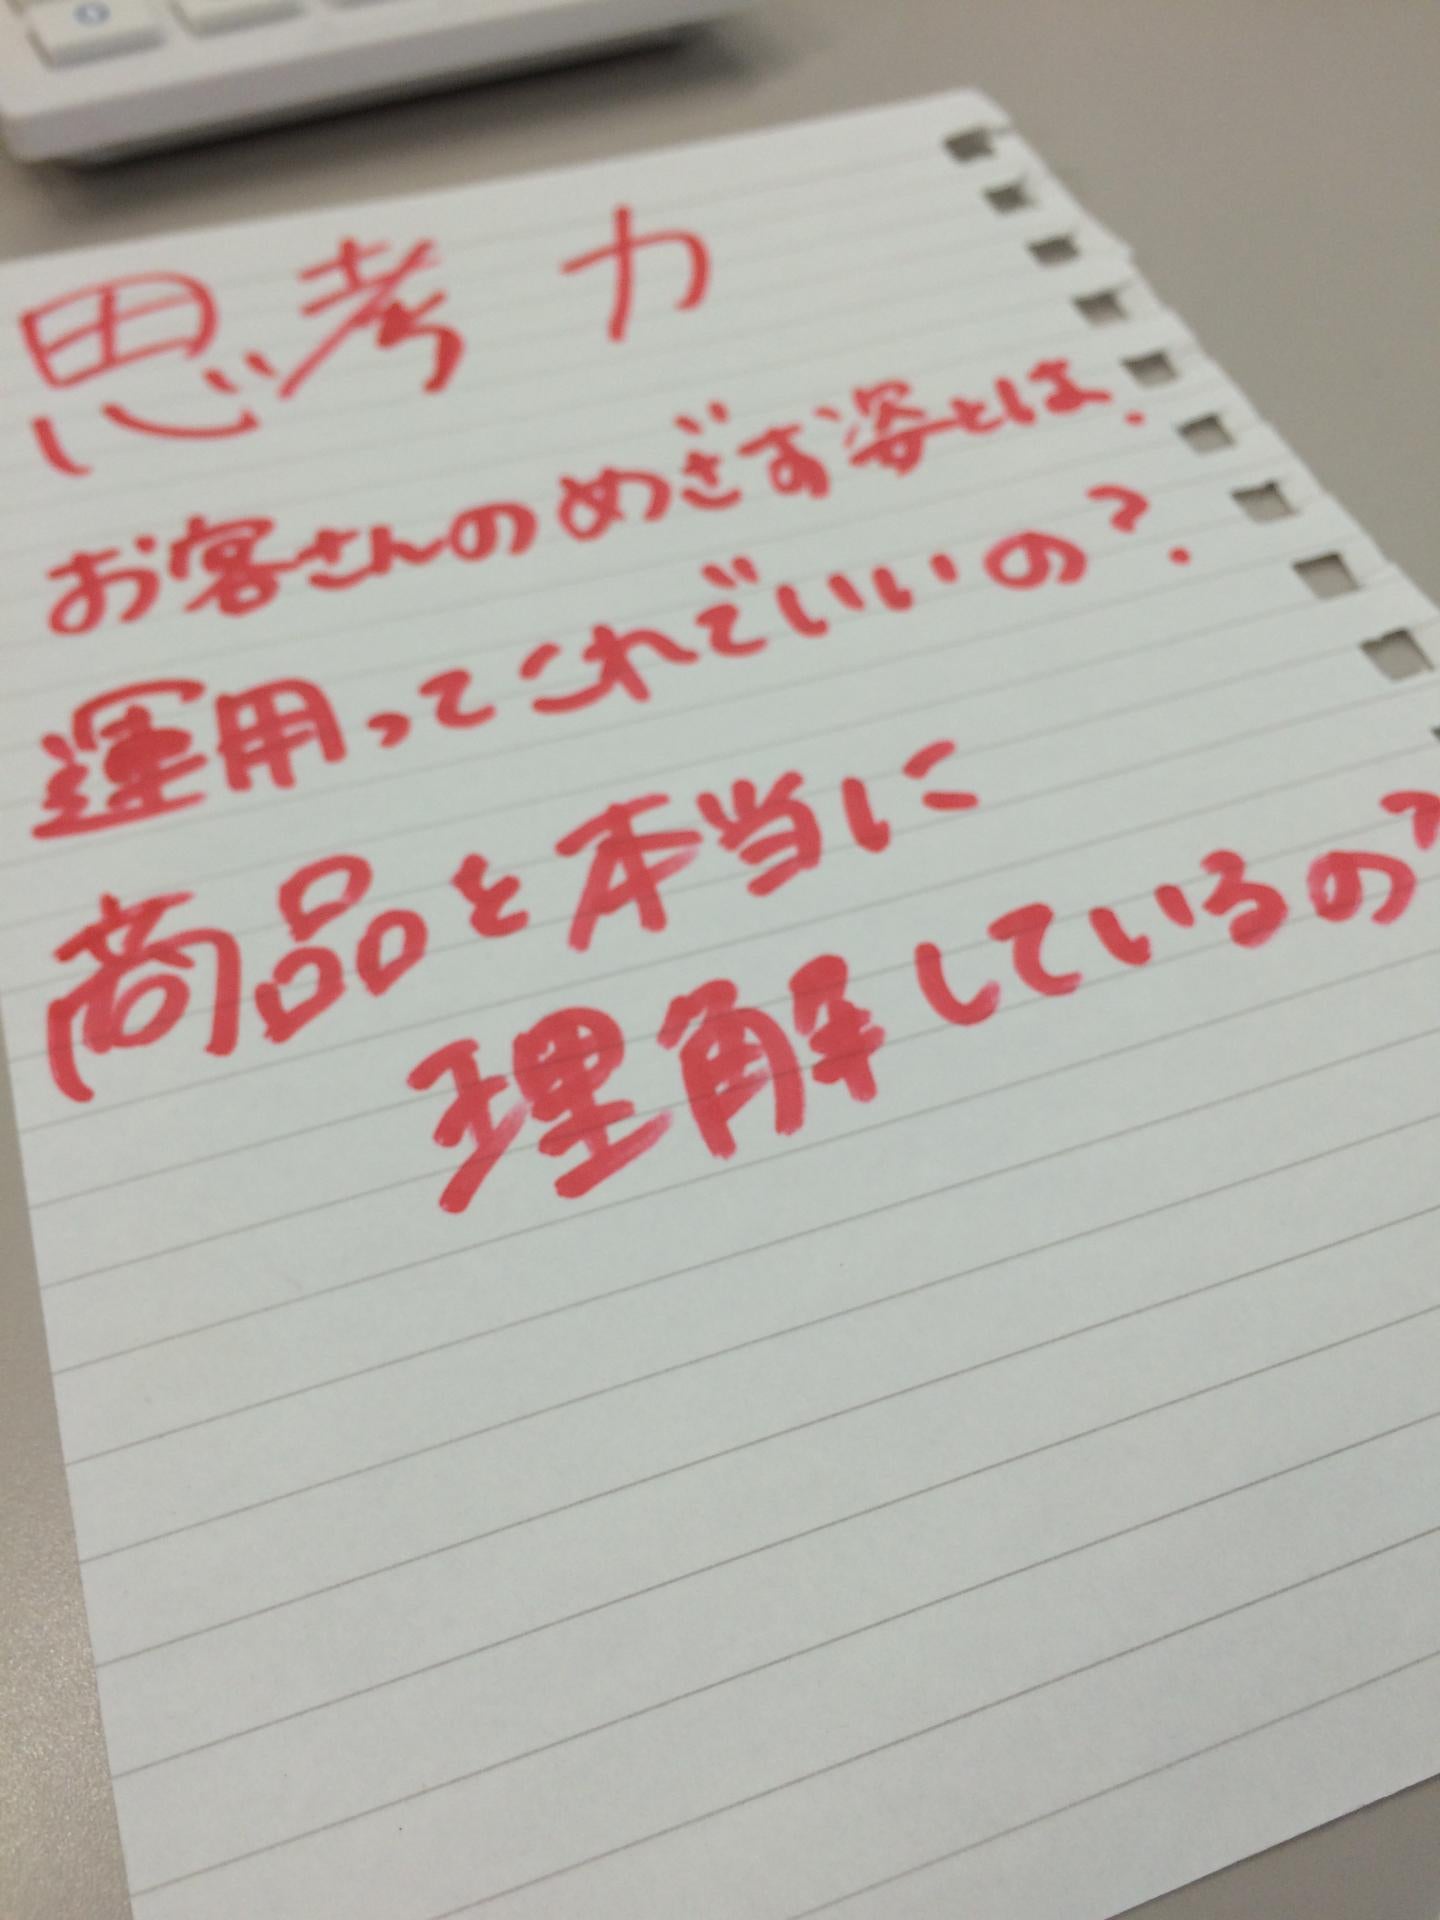 思考力
お客さんのめざす姿とは.
運用ってこれでいいの?
商品を本当に
理解しているの?